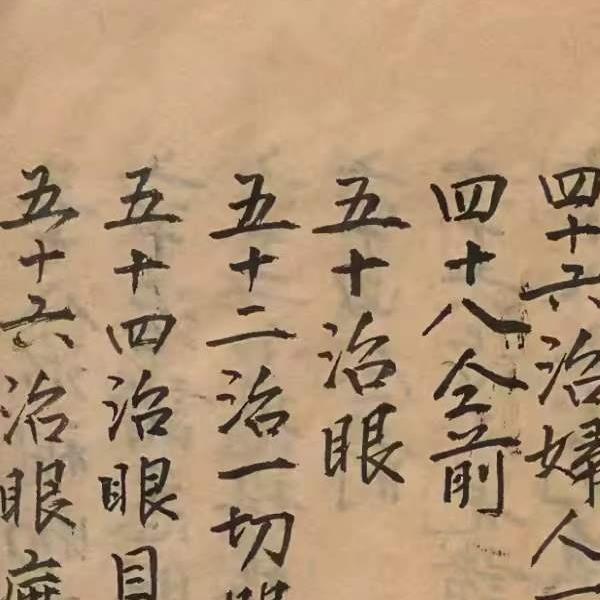 四十六治婦人一
四十八仝前
五十治眼
五十二治一切眼
五十四治眼目
五十六治眼麻